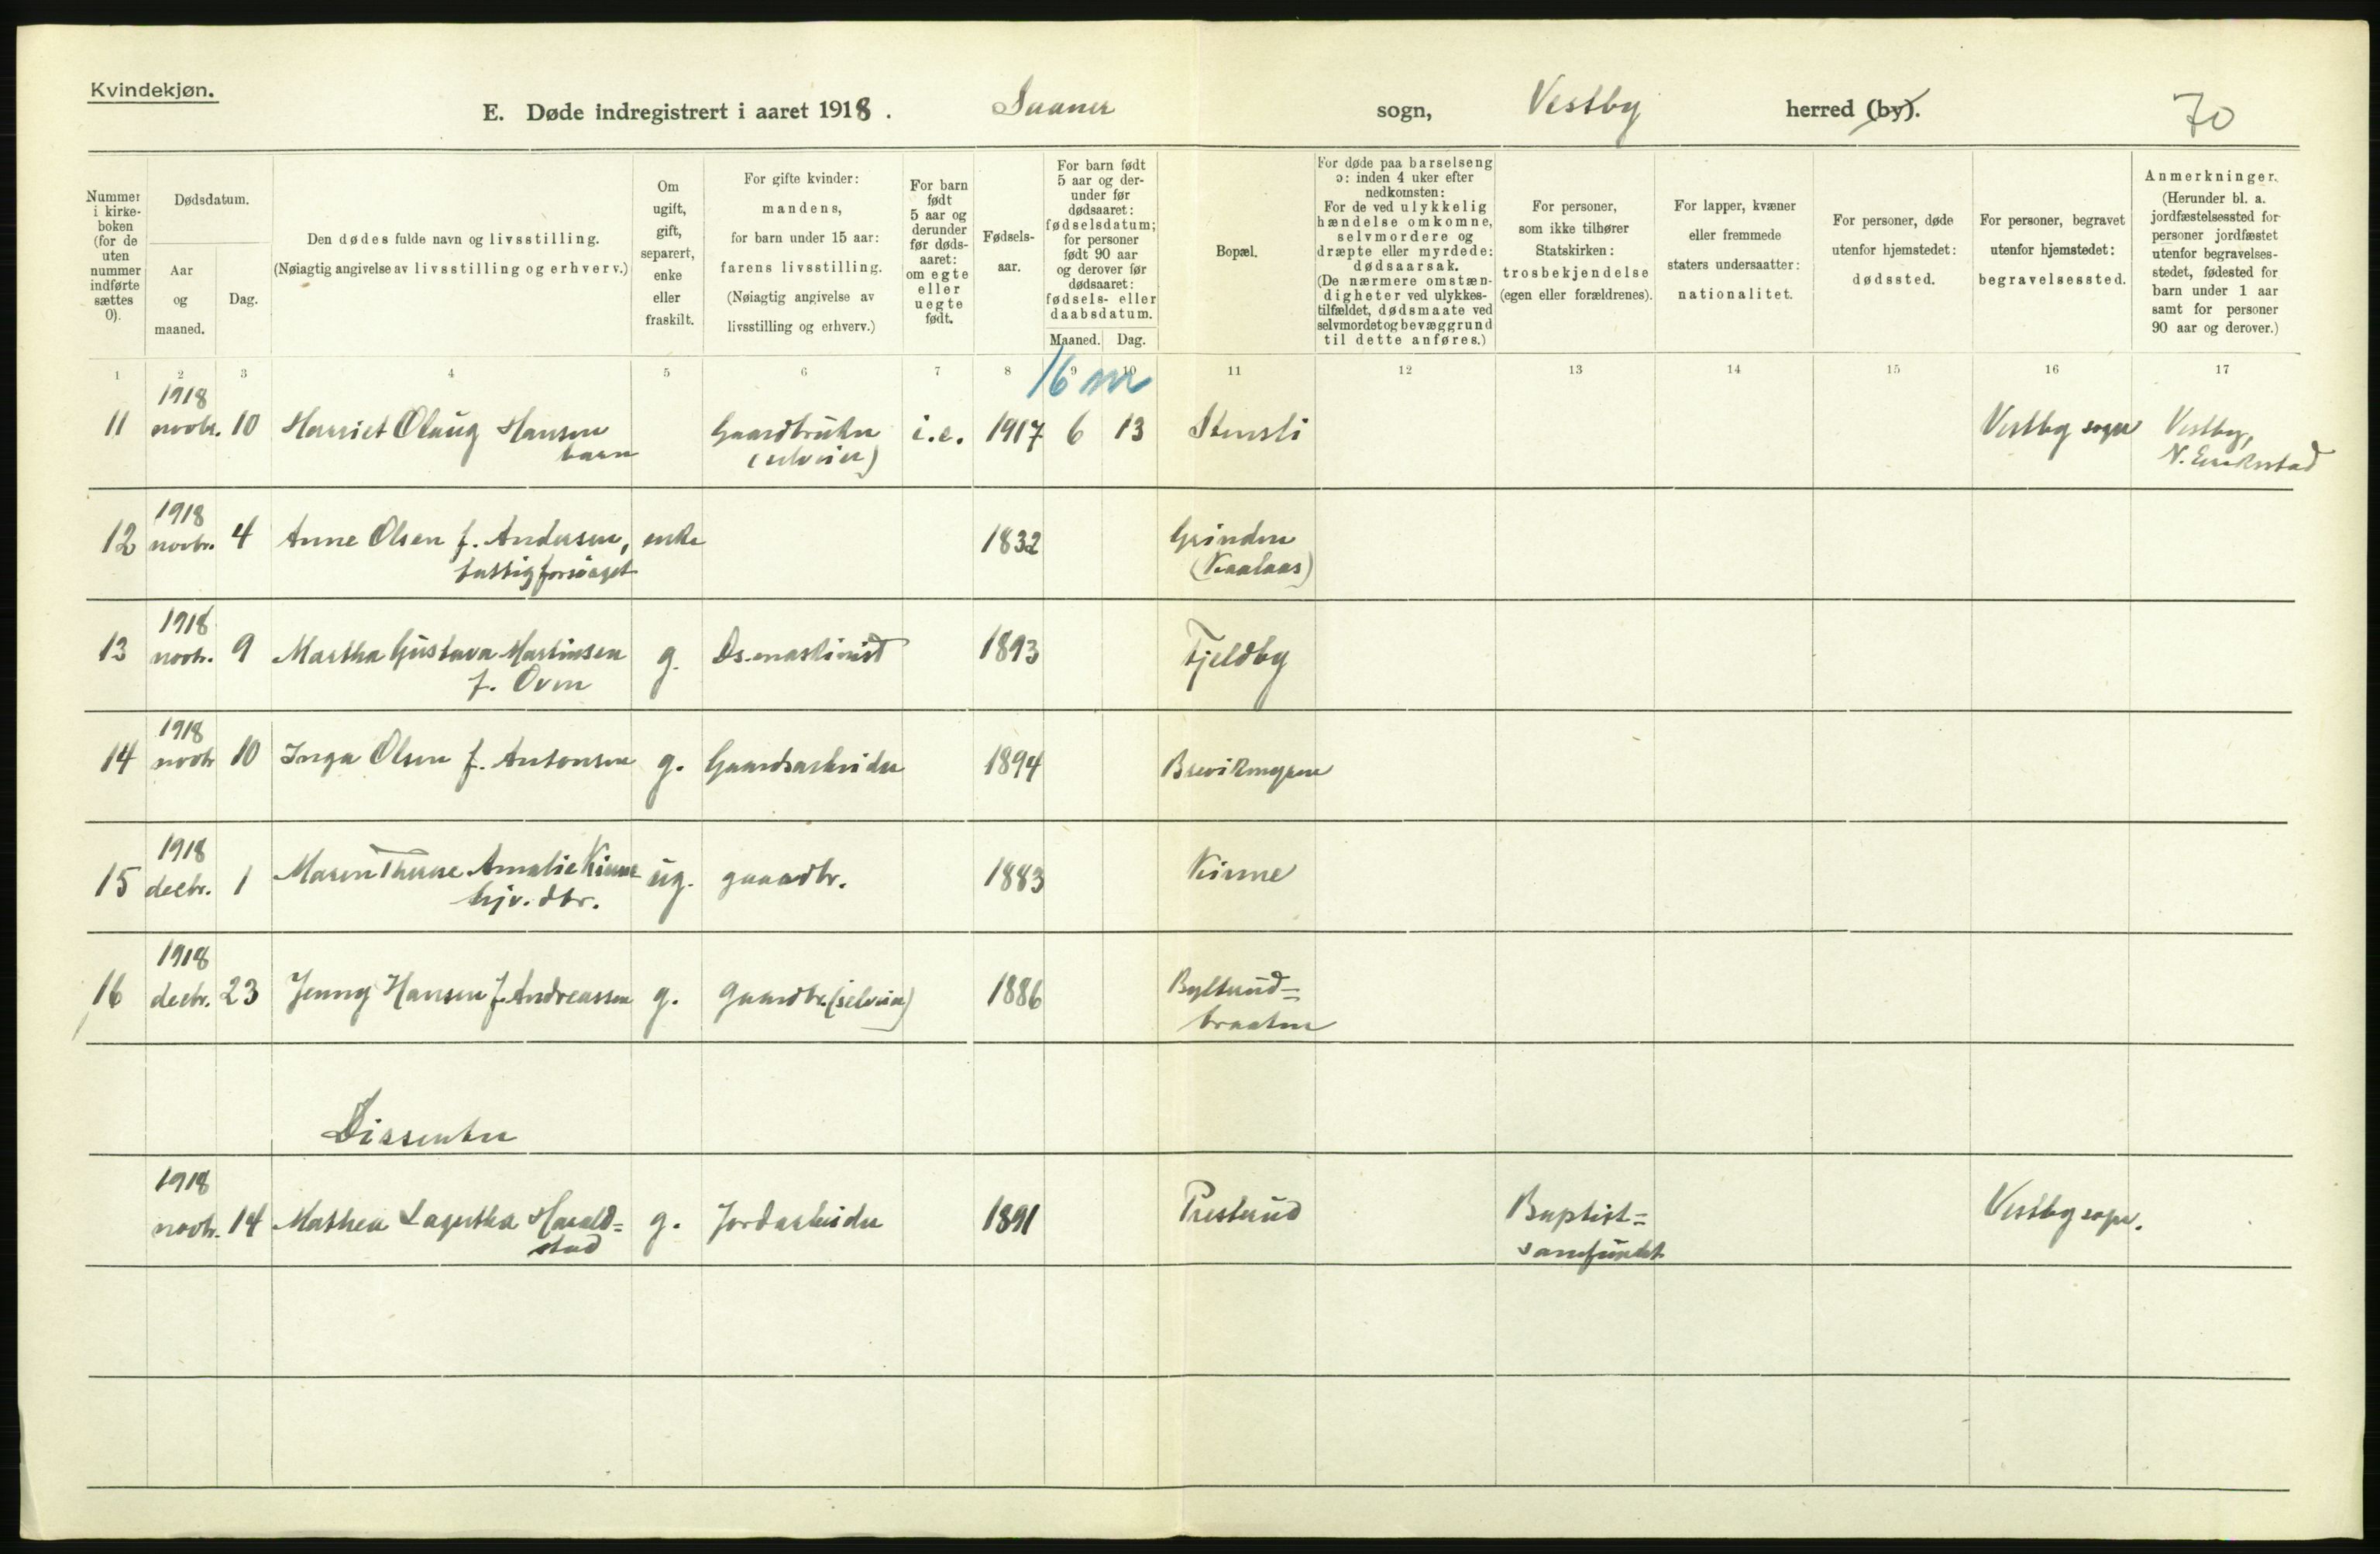 Kvindekjøn.
E. Døde indregistrert i aaret 1918. Saaner sogn, Vestby herred (by).
70
Nummer i kirkeboken (for de uten nummer indførte sættes 0).
Dødsdatum.
Aar og maaned.
Dag.
Den dødes fulde navn og livsstilling.
(Nøiagtig angivelse av livsstilling og erhverv.)
Om ugift, gift, separert, enke eller fraskilt.
For gifte kvinder: mandens, for barn under 15 aar: farens livsstilling. (Nøiagtig angivelse av livsstilling og erhverv.)
For barn født 5 aar og derunder før dødsaaret: om egte eller uegte født.
Fødselsaar.
For barn født 5 aar og derunder før dødsaaret: fødselsdatum; for personer født 90 aar og derover før dødsaaret: fødsels- eller daabsdatum.
Maaned. Dag.
Bopæl.
For døde paa barselseng ɔ: inden 4 uker efter nedkomsten: For de ved ulykkelig hændelse omkomne, selvmordere og dræpte eller myrdede: dødsaarsak. (De nærmere omstændigheter ved ulykkestilfældet, dødsmaate ved selvmordet og bevæggrund til dette anføres.)
For personer, som ikke tilhører Statskirken: trosbekjendelse (egen eller forældrenes).
For lapper, kvæner eller fremmede staters undersaatter: nationalitet.
For personer, døde utenfor hjemstedet: dødssted.
For personer, begravet utenfor hjemstedet: begravelsessted.
Anmerkninger. (Herunder bl. a. jordfæstelsessted for personer jordfæstet utenfor begravelsesstedet, fødested for barn under 1 aar samt for personer 90 aar og derover.)
1 2 3 4 5 6 7 8 9 10 11 12 13 14 15 16 17
16 m
1918
11 novbr. 10 Harriet Olaug Hansen Gaardbruker i.e. 1917 6 13 Stensli Vestby sogn Vestby,
barn (selveier) N.
1918
12 novbr. 4 Anne Olsen f. Andersen, enke 1832 Grinden
fattigforsørget (Kaalaas)
1918
13 novbr. 9 Martha Gustava Martinsen g. Ds.maskinist 1893 Fjeldby
f. Oven
1918
14 novbr 10 Inga Olsen f. Antonsen g. Gaardsarbeider 1894 Brevikmyren
1918
15 decbr. 1 Maren Therese Amalie Kinne ug. gaardbr. 1883 Kinne
hjv. dtr.
1918
16 decbr. 23 Jenny Hansen f. Andreassen g. gaardbr. (selveier) 1886
braaten
Dissenter
1918
novbr. 14 Mathea Lagertha Harald= g. Jordarbeider 1891 Presterud Baptist= Vestby sogn.
stad samfundet